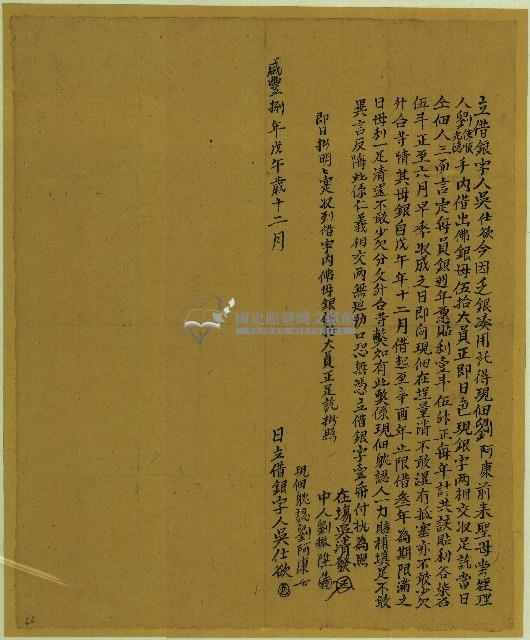 立借銀字人吳仕欲今因乏銀湊用託得現佃劉阿康前來聖母嘗經理
人劉德順
劉光德手內借出佛銀母伍拾大員正即日色現銀字兩相交收足訖當日
仝佃人三面言定每員銀週年愿貼利壹斗伍升正每年計共該貼利谷柒石
伍斗正至六月早季收成之日即向現佃在埕量清不敢濕有抵塞亦不敢少欠
升合等情其母銀自戊午年十二月借起至辛酉年止限借叁年為期限滿之
日母利一足清還不敢少欠分文升合等獘如有此獘係現佃甘認人一力賠補填足不敢
異言反悔此係仁義相交兩無迫勒口恐無憑立借銀字壹帋付執為照
即日批明定收到借字內佛母銀伍拾大員正足訖批照
在塲吳清發
中人劉振陞
現佃甘認劉阿康
咸豐捌年戊午歲十二月 日立借銀字人吳仕欲
國史館臺灣文獻館
TAIWAN HISTORICA